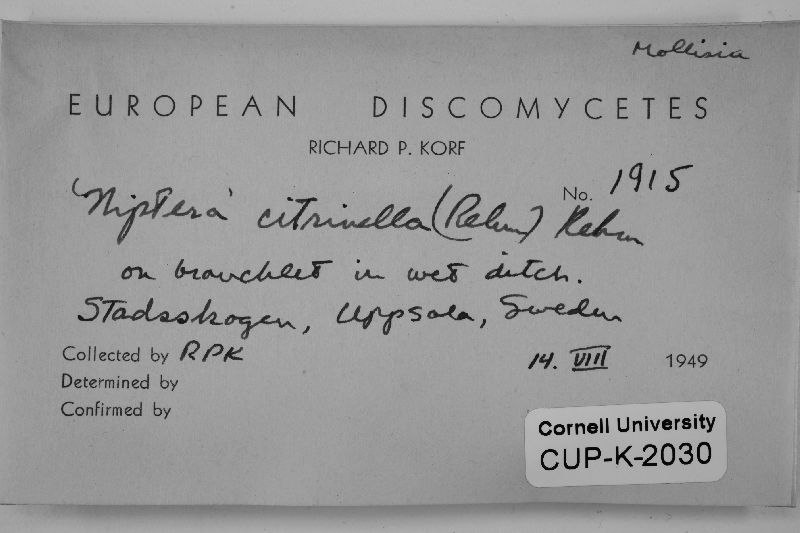 Mollisia
EUROPEAN DISCOMYCETES
RICHARD P. KORF
No. 1915
'Niptera' citrinella (Rehm) Rehm
on branchlet in wet ditch.
Stadsskogen, Uppsala, Sweden
Collected by RPK 14. VIII 1949
Determined by
Confirmed by
Cornell University
CUP-K-2030